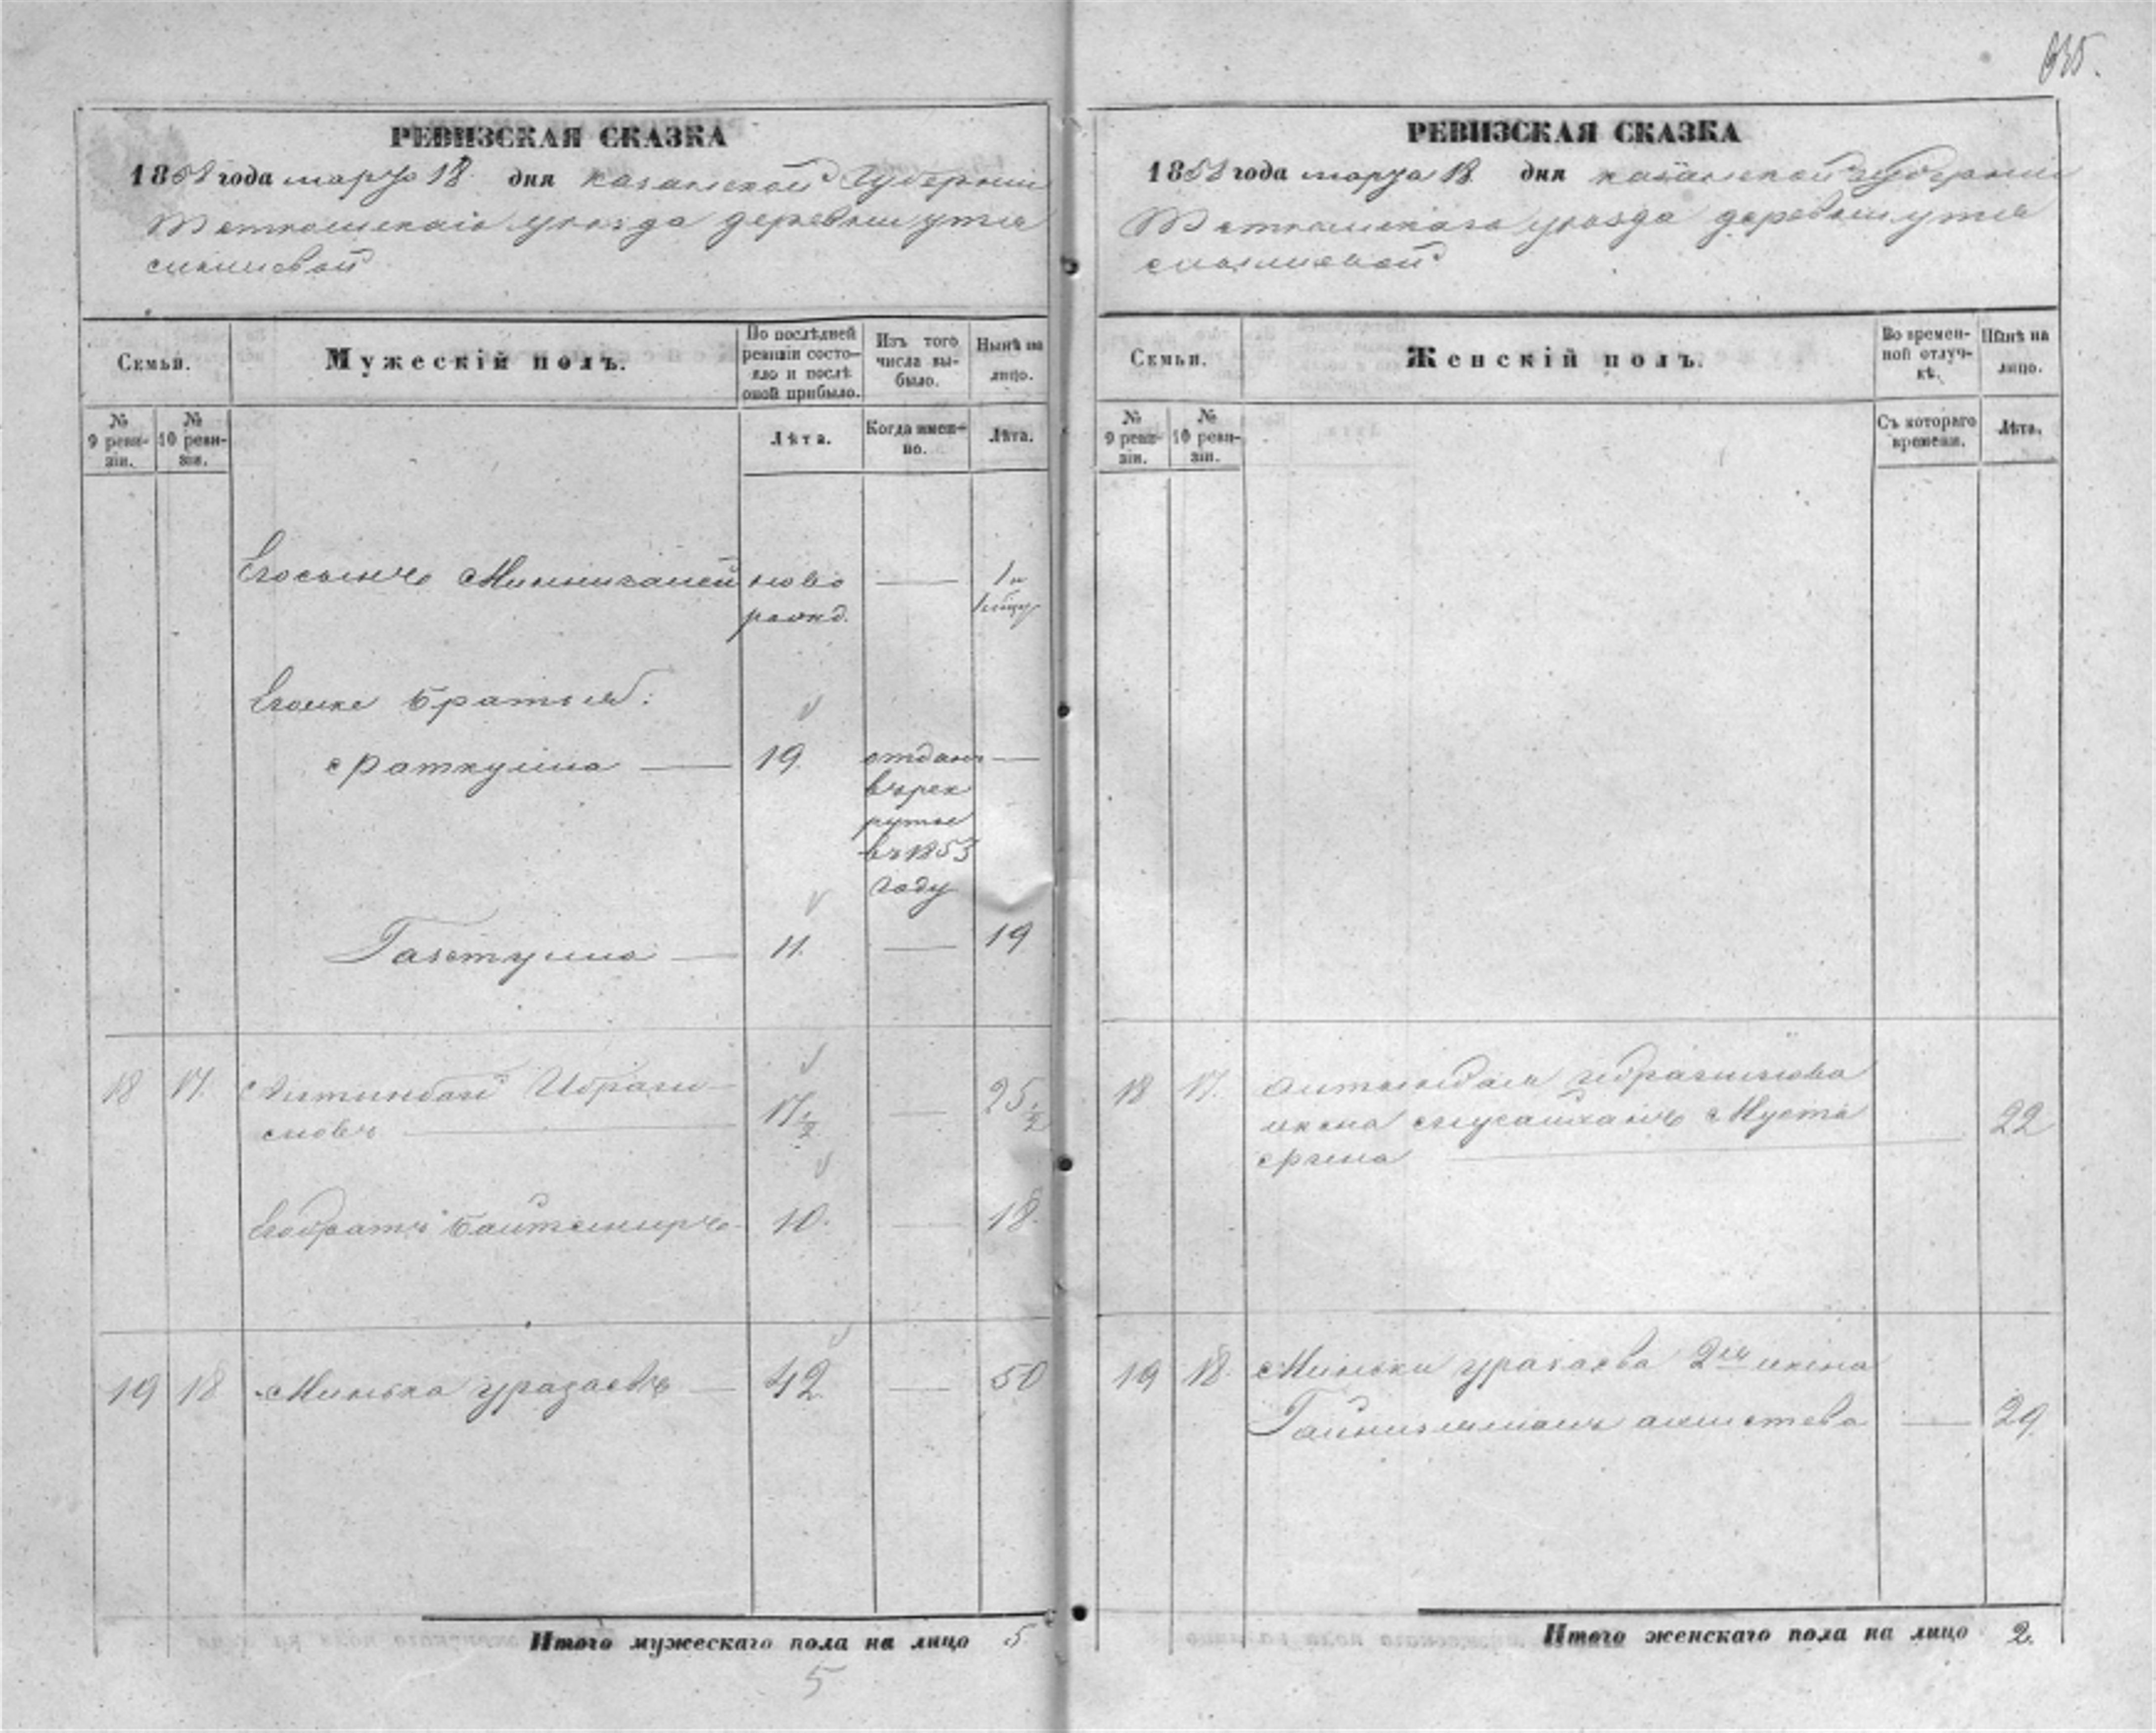 635.
РЕВИЗСКАЯ СКАЗКА
1858 года марта 18 дня Казанской Губернии
Тетюшскаго уезда деревни Утя
мишевой
Семьи.
Мужескій полъ.
По послѣдней ревизіи состояло и послѣ оной прибыло.
Изъ того числа выбыло.
Нынѣ на лицо.
№ 9 ревизіи.
№ 10 ревизіи.
Лѣта.
Когда именно.
Лѣта.
Егосынъ Миннигалей ново — 1 и
рожд.
Егоже братья:
Раткулла — 19. отданъ —
въ рек
руты
въ 1853
году
11. — 19
18 17. Ибраги
мовъ — 17 1/2 — 25 1/2
Егобратъ Байтемиръ 10. — 18.
19 18 Минька Уразаевъ — 42. — 50
Итого мужескаго пола на лицо 5.
5
РЕВИЗСКАЯ СКАЗКА
1858 года марта 18 дня Казанской Губернии
Тетюшскаго уезда деревни Утя
мишевой
Семьи.
Женскій полъ.
Во временной отлучкѣ.
Нынѣ на лицо.
№ 9 ревизіи.
№ 10 ревизіи.
Съ котораго времени.
Лѣта.
18 17. Ибрагимова
жена Муста
фина — 22
19 18. Миньки Уразаева 2я жена
— 29.
Итого женскаго пола на лицо 2.